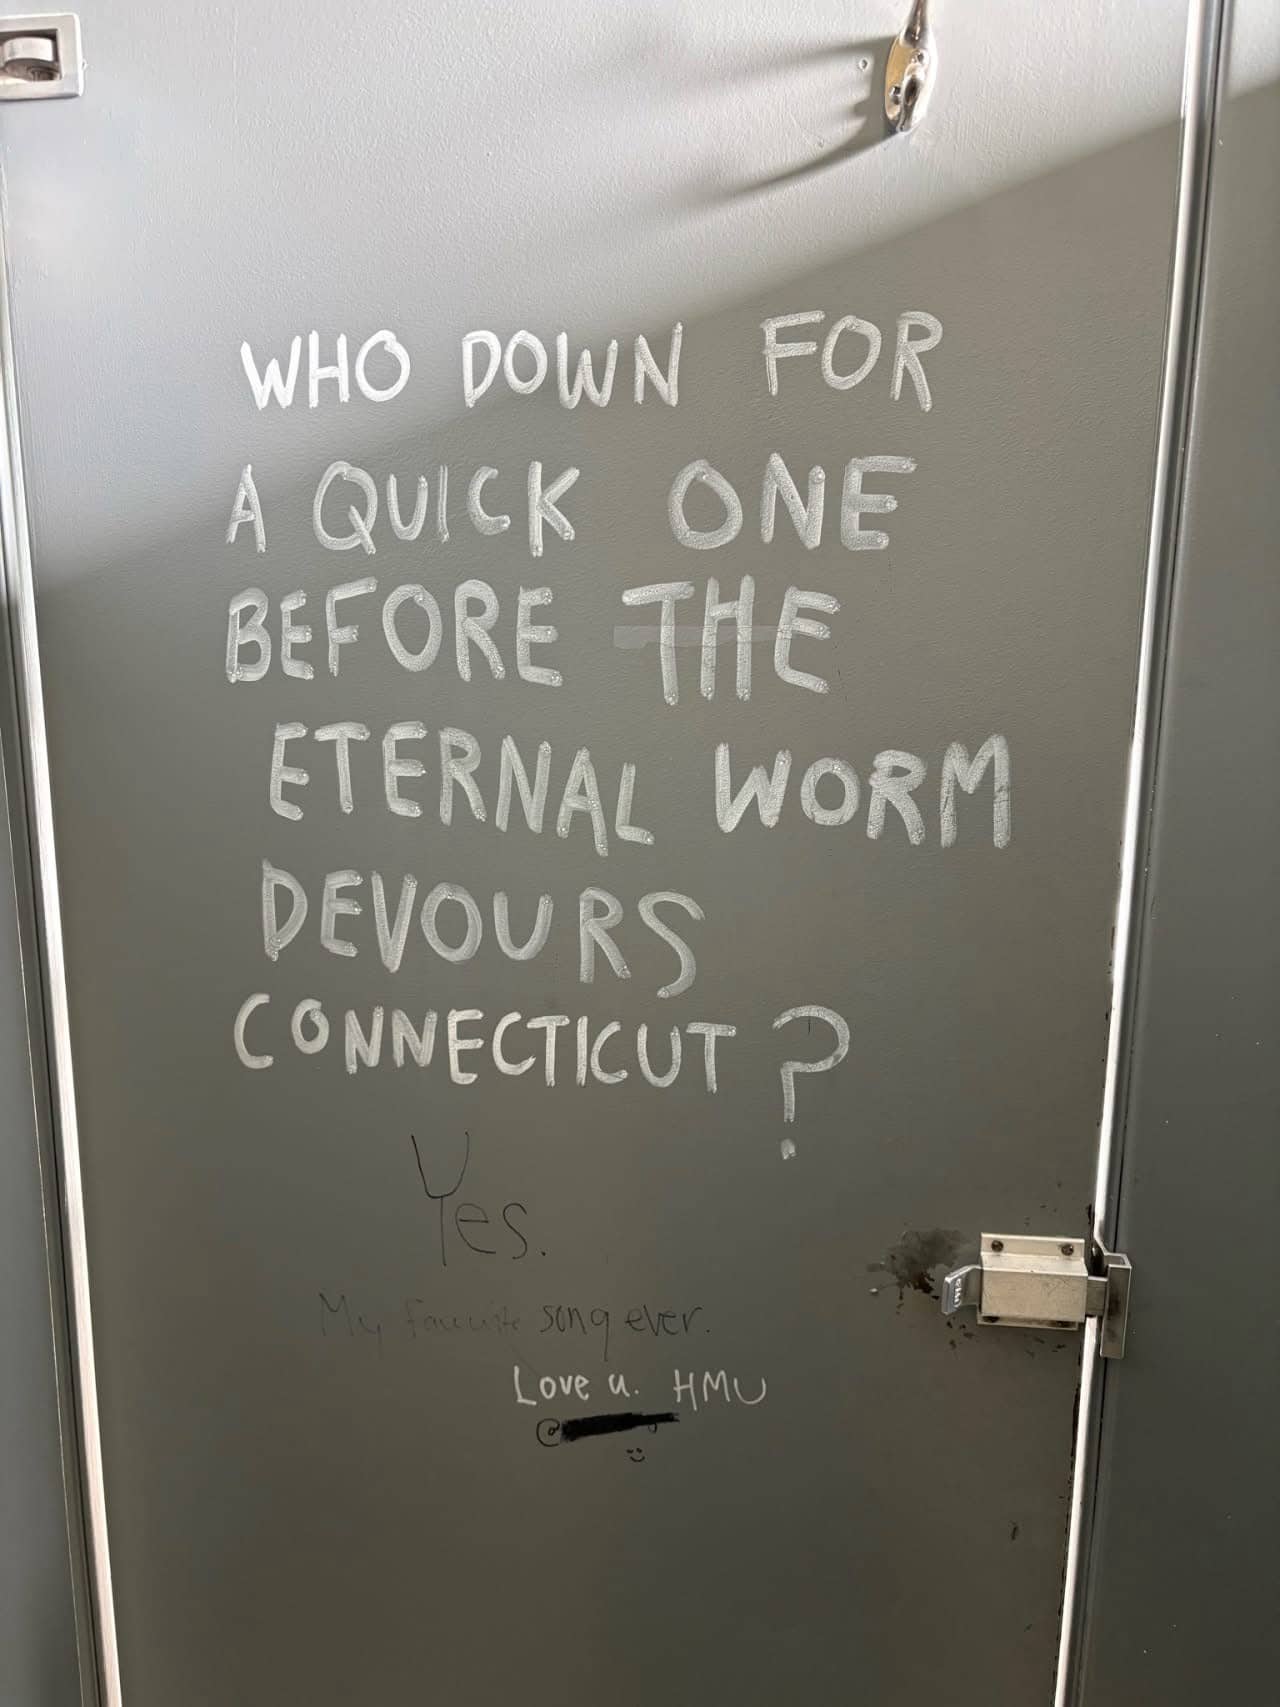 WHO DOWN FOR
A QUICK ONE
BEFORE THE
ETERNAL WORM
DEVOURS
CONNECTICUT?
Yes.
My favorite song ever.
Love u. HMU
@